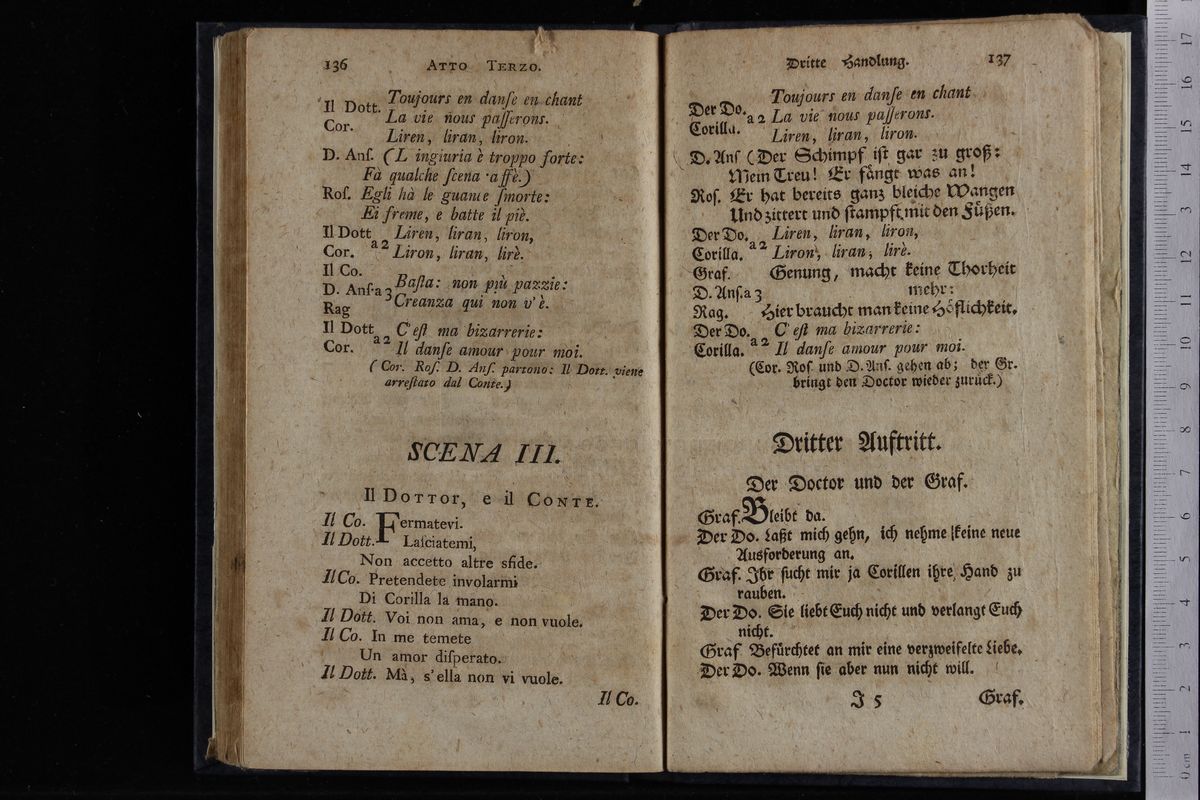 136 ATTO TERZO.
Il Dott. Toujours en danſe en chant
La vie nous paſſerons.
Cor. Liren, liran, liron.
D. Anſ. (L ingiuria è troppo forte:
Fà qualche ſcena affè.)
Roſ. Egli hà le guance ſmorte:
Ei freme, e batte il piè.
Il Dott Liren, liran, liron,
Cor. a 2 Liron, liran, lirè.
Il Co.
D. Anſ. a 3 Baſta: non più pazzie:
Rag Creanza qui non v'è.
Il Dott C'eſt ma bizarrerie:
Cor. a 2 Il danſe amour pour moi.
(Cor. Roſ. D. Anſ. partono: Il Dott. viene
arreſtato dal Conte.)
SCENA III.
Il DOTTOR, e il CONTE.
Il Co. Fermatevi.
Il Dott. Laſciatemi,
Non accetto altre sfide.
Il Co. Pretendete involarmi
Di Corilla la mano.
Il Dott. Voi non ama, e non vuole.
Il Co. In me temete
Un amor diſperato.
Il Dott. Mà, s'ella non vi vuole.
Il Co.
Dritte Handlung. 137
Toujours en danſe en chant
Der Do. a 2 La vie nous paſſerons.
Corilla. Liren, liran, liron.
D. Anſ (Der Schimpf iſt gar zu groß:
Mein Treu! Er fängt was an!
Roſ. Er hat bereits ganz bleiche Wangen
Und zittert und ſtampft mit den Füßen.
Der Do. Liren, liran, liron,
Corilla. a 2 Liron, liran, lirè.
Graf. Genung, macht keine Thorheit
D. Anſ. a 3 mehr:
Rag. Hier braucht man keine Höflichkeit.
Der Do. C'eſt ma bizarrerie:
Corilla. a 2 Il danſe amour pour moi.
(Cor. Roſ. und D. Anſ. gehen ab; der Gr.
bringt den Doctor wieder zurück.)
Dritter Auftritt.
Der Doctor und der Graf.
Graf. Bleibt da.
Der Do. Laßt mich gehn, ich nehme keine neue
Ausforderung an.
Graf. Ihr ſucht mir ja Corillen ihre Hand zu
rauben.
Der Do. Sie liebt Euch nicht und verlangt Euch
nicht.
Graf Befürchtet an mir eine verzweifelte Liebe.
Der Do. Wenn ſie aber nun nicht will.
J 5 Graf.
0 cm 1 2 3 4 5 6 7 8 9 10 11 12 13 14 15 16 17